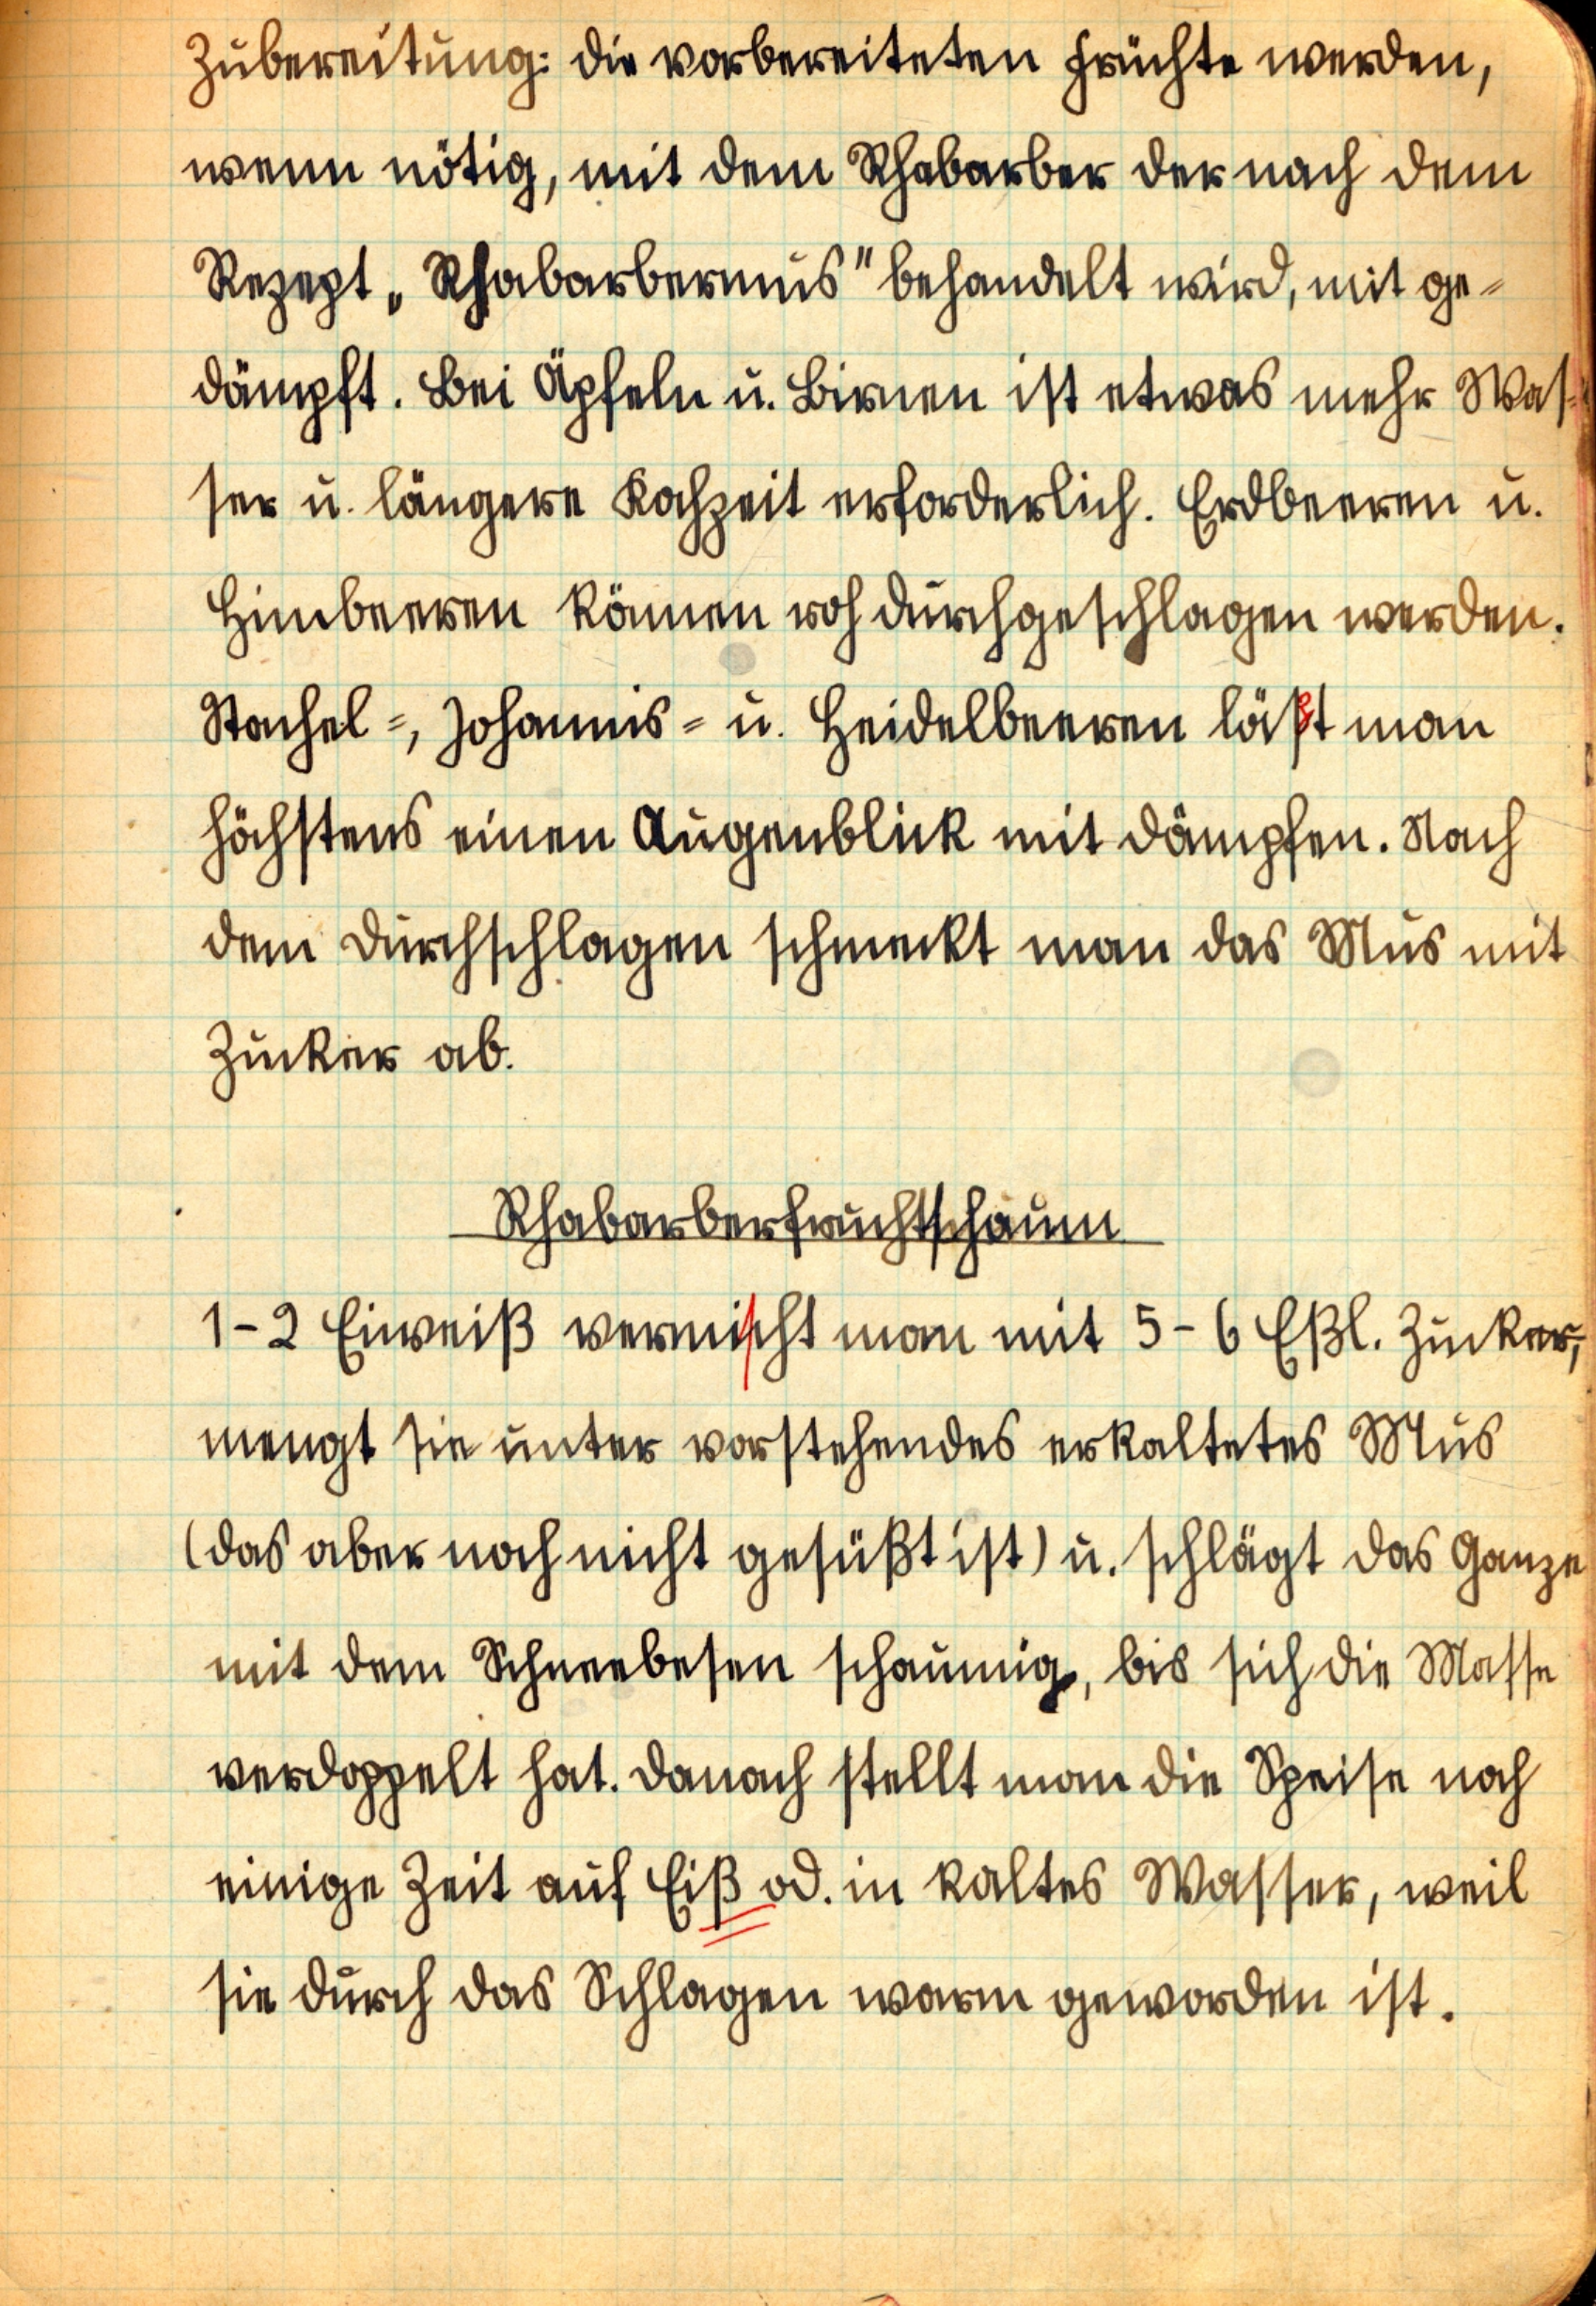 Zubereitung: die vorbereiteten Früchte werden,
wenn nötig, mit dem Rhabarber der nach dem
Rezept „Rhabarbermus" behandelt wird, mit ge-
dämpft. Bei Äpfeln u. Birnen ist etwas mehr Was-
ser u. längere Kochzeit erforderlich. Erdbeeren u.
Himbeeren können roh durchgeschlagen werden.
Stachel-, Johannis- u. Heidelbeeren läßt man
höchstens einen Augenblick mit dämpfen. Nach
dem Durchschlagen schmeckt man das Mus mit
Zucker ab.
Rhabarberfruchtschaum
1-2 Eiweiß vermischt man mit 5-6 Eßl. Zucker,
mengt sie unter vorstehendes erkaltetes Mus
(das aber noch nicht gesüßt ist) u. schlägt das Ganze
mit dem Schneebesen schaumig, bis sich die Masse
verdoppelt hat. Danach stellt man die Speise noch
einige Zeit auf Eiß od. in kaltes Wasser, weil
sie durch das Schlagen warm geworden ist.